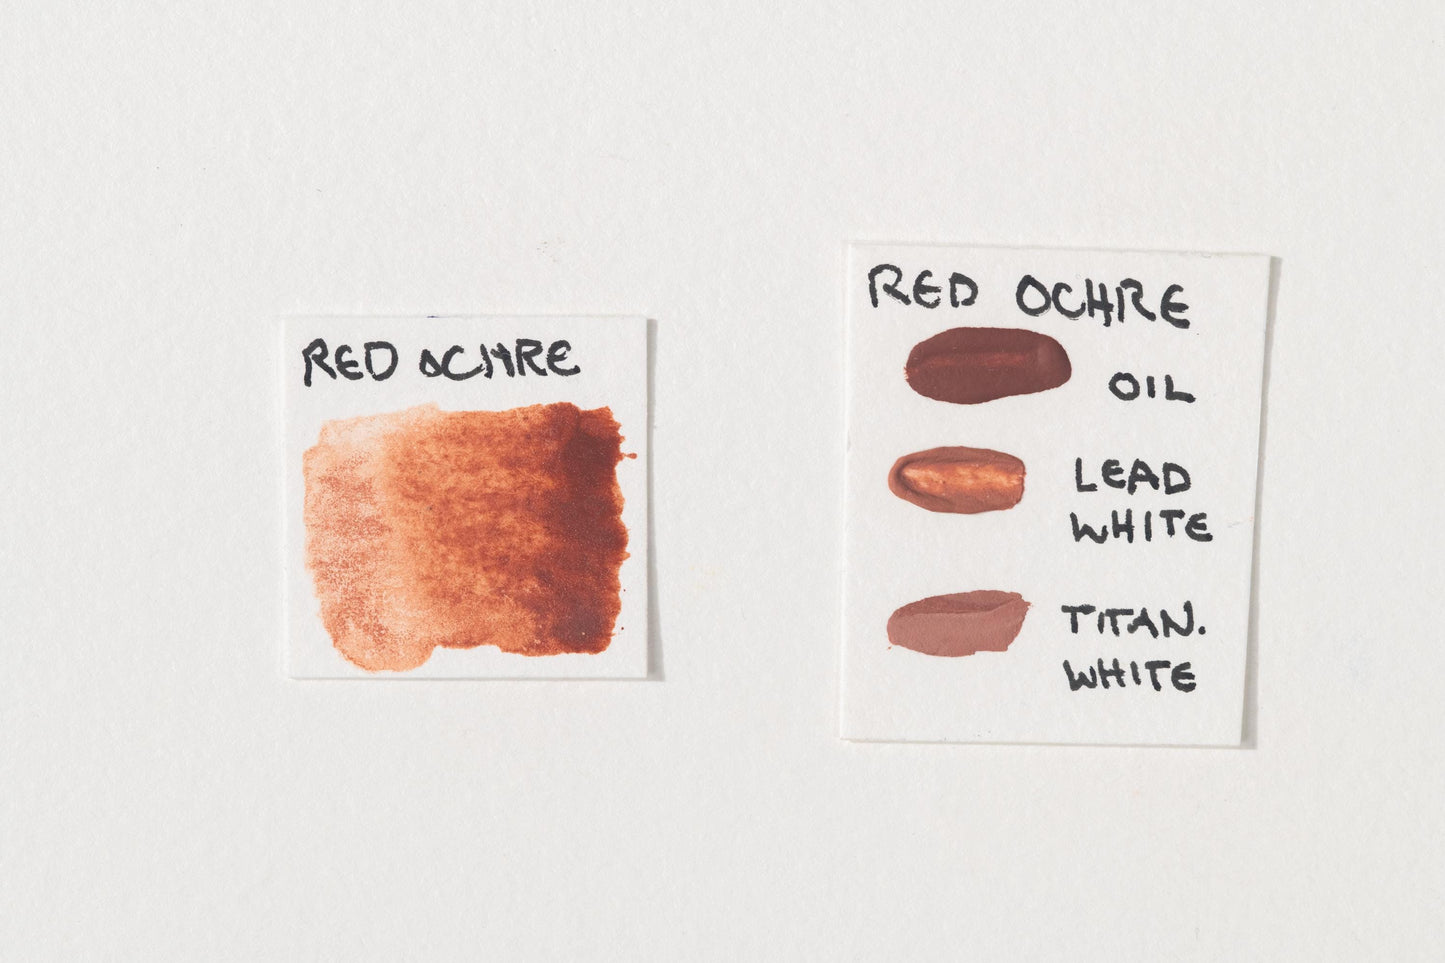 RED OCHRE
RED OCHRE
OIL
LEAD
WHITE
TITAN.
WHITE